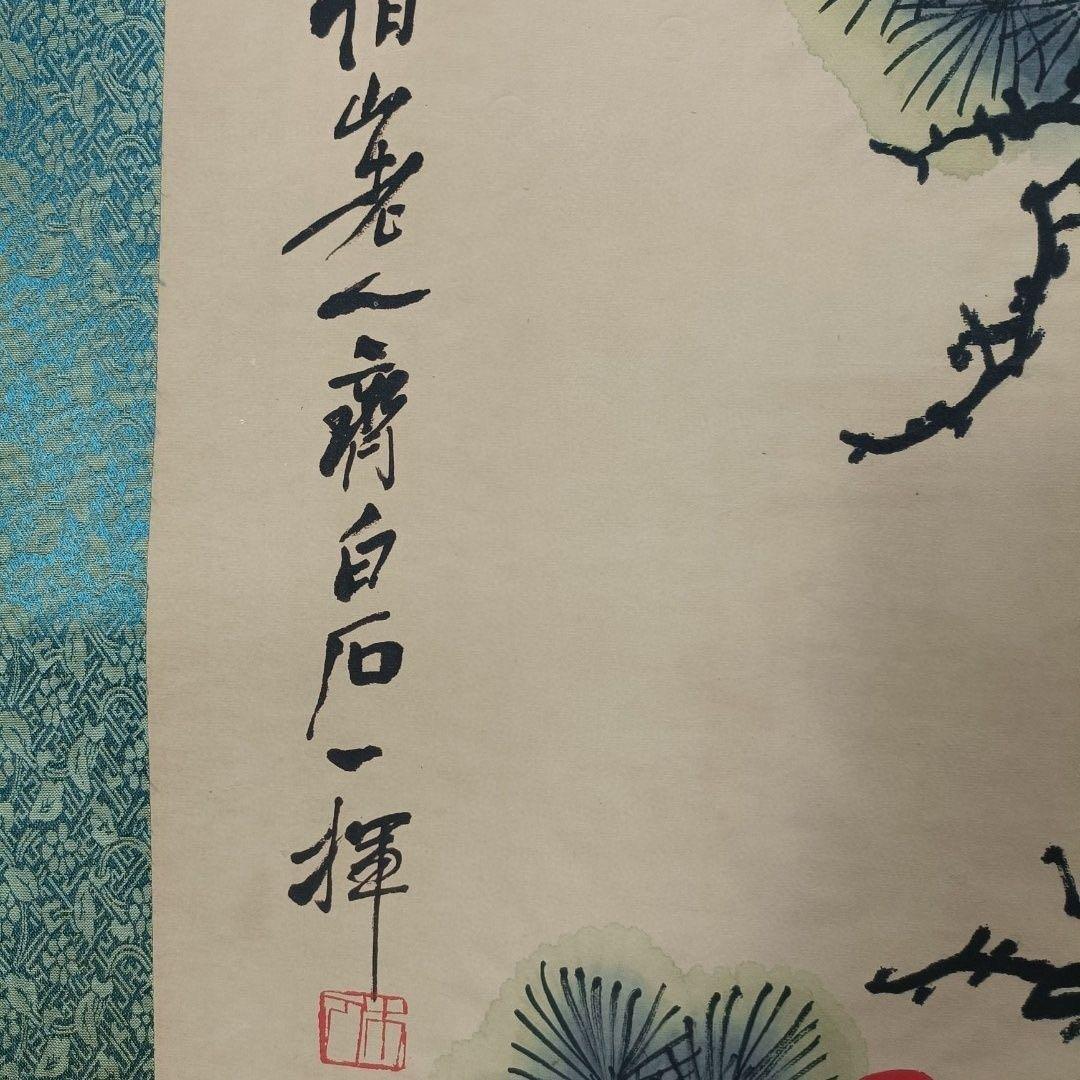 借山老人齊白石一揮